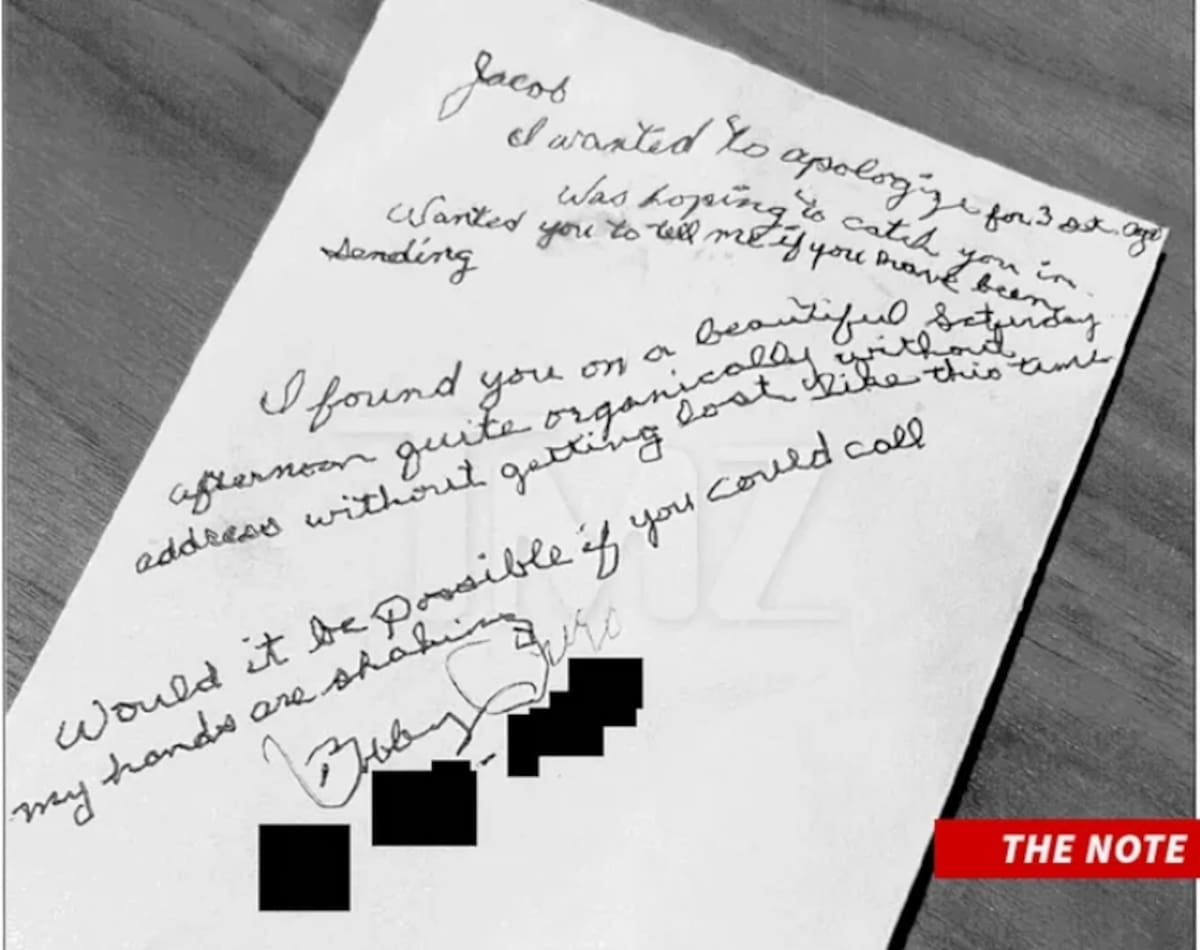 Jacob
I wanted to apologize for 3 ago
Was hoping to catch you in
Wanted you to tell me if you have been
sending
I found you on a beautiful Saturday
afternoon quite organically without
address without getting lost like this time
Would it be possible if you could call
my hands are shaking
Bobby
TMZ
THE NOTE